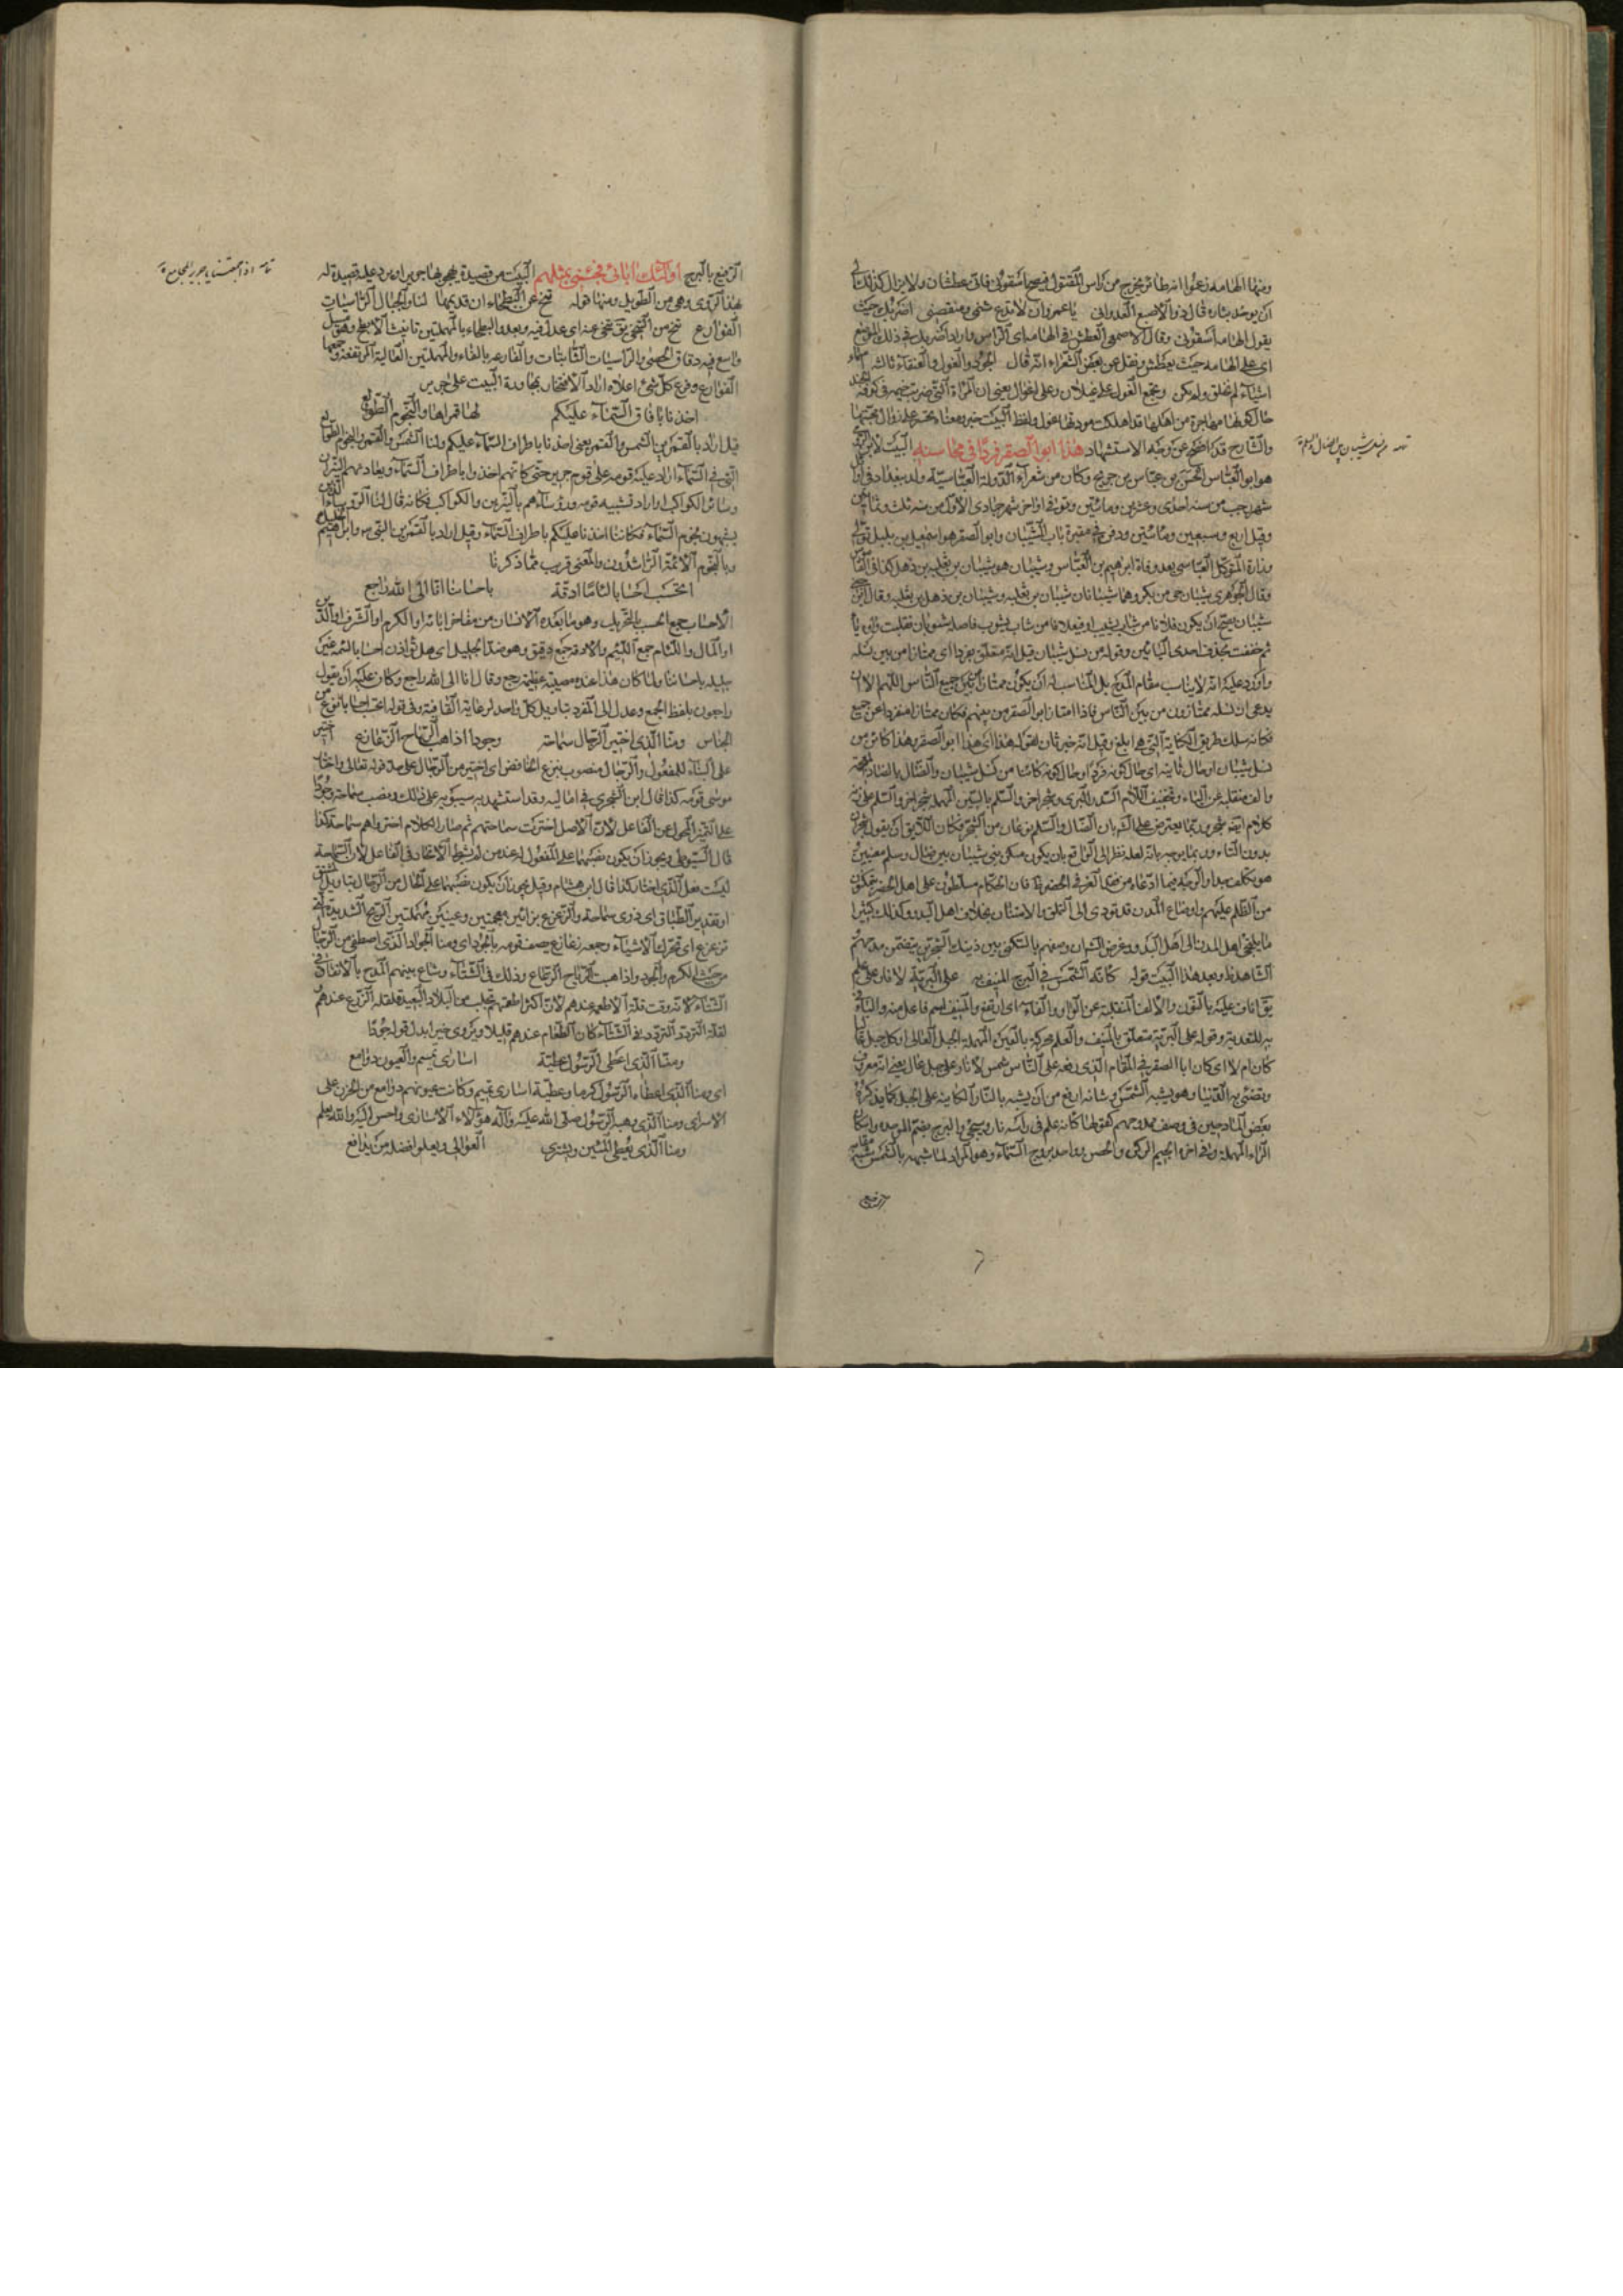 ومنها الهامه زعموا انه طائر يخرج من راس المقتول فيصيح اسقونى فانى عطشان ولا يزال كذلك الى
ان يوخذ بثاره قال ذو الاصبع العدوانى يا عمرو ان لا تدع شتمى ومنقصتى اضربك حيث
يقول الهامه اسقونى وقال الاصمعى العطش فى الهامه اى الراس واراد اضربك فى ذلك الموضع
اى على الهامه حيث يعطش ونقل عن بعض الشعراء انه قال الجود والغول والعنقاء ثالثه اسماء
اشياء لم تخلق ولم تكن وتجمع الغول على غيلان وعلى اغوال يعنى ان المراة التى ضربت خيمه فى كوفة الجند
حال كونها مهاجرة من اهلها قد اهلكت مودتها غول ولفظ البيت خبر ومعناه تحسر على زوال محبتها
والشارح قد اضح عن وجه الاستشهاد هذا ابو الصقر فردا فى محاسنه البيت لابن الرومى
هو ابو العباس الحسن بن عباس بن جريج وكان من شعراء الدولة العباسيّة ولد ببغداد فى اول
شهر رجب من سنه احدى وعشرين ومائتين وتوفى فى اواخر شهر جمادى الاولى من سنه ثلث وثمانين
وقيل اربع وسبعين ومائتين ودفن فى مقبرة باب الشيبان وابو الصقر هو اسمعيل بن بلبل تولى
وزارة المتوكل العباسى بعد وفاة ابراهيم بن العباس وشيبان هو شيبان بن ثعلبه بن ذهل كذا فى القاموس
وقال الجوهرى شيبان حى من بكر وهما شيبانان شيبان بن ثعلبه وشيبان بن ذهل بن ثعلبه وقال ابن جنى
شيبان يحتمل ان يكون فعلانا من شاب يشيب او فيعلانا من شاب يشوب فاصله شيوبان فقلبت واوه ياء
ثم خففت بحذف احدى اليائين وقوله من نسل شيبان قيل انه متعلق بفردا اى ممتازا من بين نسله
واورد عليه انه لا يناسب مقام المدح بل المناسب له ان يكون ممتازا عن جميع الناس اللهم الا ان
يدعى ان نسله ممتازون من بين الناس فاذا امتاز ابو الصقر من بينهم فكان ممتازا منفردا عن جميع
فكانه سلك طريق الكناية التى هى ابلغ وقيل انه خبر ثان لقوله هذا اى هذا ابو الصقر وهذا كائن من
نسل شيبان او حال ثانيه اى حال كونه فردا وحال كونه كائنا من نسل شيبان والضال بالضاد المعجمه
والف منقلبه عن الياء وتخفيف اللام السدر البرى وشجر اخر والسلم بالسين المهمله شجر اخر والسلم على زنه
كلام ايضه شجر وربما يعترض على الشر بان الضال والسلم نوعان من الشجر فكان اللايق ان يقول شجران
بدون التاء وربما يوجه بانه لعله نظر الى الواقع بان يكون مسكن بنى شيبان بين ضال وسلم معينين
من الظلم عليهم واوضاع المدن قد تودى الى التملق والامتنان بخلاف اهل البدو وكذلك كثيرا
ما يلتجى اهل المدن الى اهل البدو وغرض الشر ان وصفهم بالتسكن بين ذينك الشجرتين يتضمن مدحهم
الشاهد ظ وبعد هذا البيت قوله كانه الشمس فى البرج المنيف به على البرية لا نار على علم
يق اناف عليه بالنون والالف المنقلبة عن الواو والفاء اى ارتفع والمنيف اسم فاعل منه والباء فى
به للتعدية وقوله على البرية متعلق بالمنيف والعلم محركة بالعين المهملة الجبل العالى او كل جبل عاليا
كان ام لا اى كان ابا الصقر فى المقام الذى رفعه على الناس شمس لا نار على جبل عال يعنى انه معروف
وتضئ به الدنيا وهو يشبه الشمس وشانه ارفع من ان يشبه بالنار الكاينه على الجبل كما يذكره
بعض المادحين فى وصف ممدوحهم كقولها كانه علم فى راسه نار ويجئ والبرج بضم الموحده واسكان
الراء المهملة وفى اخره الجيم الركن والحصن وواحد بروج السماء وهو المراد لما شبهه بالشمس شبه مقامه
الرفيع
الرفيع بالبرج اولئك ابائى فجئنى بمثلهم البيت من قصيدة يهجو بها جرير ان يرد عليه قصيدة له
بهذا الروى وهى من الطويل ومنها قوله تنح عن البطحاء ان قديمها لنا والجبال الراسيات
الفوارع تنح من التنحى يق تنحى عنه اى عدل فيه وبعد والبطحاء بالمهملتين تانيث الابطح وهو مسيل
واسع فيه دقاق الحصى والراسيات الثابتات والفارعه بالفاء والمهملتين العالية المرتفعة وجمعها
الفوارع وفرع كل شئ اعلاه اراد الافتخار بمجاورة البيت على جرير
اخذنا بافاق السماء عليكم لنا قمراها والنجوم الطوالع
قيل اراد بالقمرين الشمس والقمر يعنى اخذنا باطراف السماء عليكم ولنا الشمس والقمر والنجوم الطوالع
التى فى السماء اراد علية قومه على قوم جرير حتى كانهم اخذوا باطراف السماء ويعاد منهم النيران
وسائر الكواكب اراد تشبيه قومه ورؤساءهم بالنيرين والكواكب فكانه قال لنا الروساء الذين
يشبهون بنجوم السماء فكاننا اخذنا عليكم باطراف السماء وقيل اراد بالقمرين النبى ص وابراهيم الخليل
وبالنجوم الائمة الراشدون والمعنى قريب مما ذكرنا
اتحسب احسابا لئاما ادقة باحسابنا انا الى الله راجع
الاحساب جمع الحسب بالتحريك وهو ما يعده الانسان من مفاخر ابائه او الكرم او الشرف او الدين
او المال واللئام جمع اللئيم والادقه جمع دقيق وهو ضد الجليل اى هل توازن احسابا لئمه غير
جليله باحسابنا ولما كان هذا عنده مصيبة عظيمه رجع وقال انا الى الله راجع وكان عليه ان يقول
راجعون بلفظ الجمع وعدل الى المفرد بتاويل كل واحد لرعاية القافية وفى قوله اتحسب احسابا نوع من
الجناس ومنا الذى اختير الرجال سماحة وجودا اذا هب الرياح الزعازع اختير
على البناء للمفعول والرجال منصوب بنزع الخافض اى اختير من الرجال على حد قوله تعالى واختار
موسى قومه كذا قال ابن الشجرى فى اماليه وقد استشهد به سيبويه على ذلك ونصب سماحة وجودا
على التميز المحول عن الفاعل لان الاصل اختيرت سماحتهم ثم صار الكلام اختيروا هم سماحة كذا
قال السيوطى ويجوز ان يكون نصبهما على المفعول له عند من لم يشترط الاتحاد فى الفاعل لان السماحة
ليست فعل الذى اختار كذا قال ابن هشام وقيل يجوز ان يكون نصبهما على الحال من الرجال بتاويل المشتق
او تقدير المضاف اى ذوى سماحة والزعزع بزائين معجمتين وعينين مهملتين الريح الشديدة التى
تزعزع اى تحرك الاشياء وجمعه زعازع يصف قومه بالجود اى ومنا الجواد الذى اصطفى من الرجال
من حيث الكرم والجود واذا هب الرياح الزعازع وذلك فى الشتاء وشاع بينهم المدح بالانفاق فى
الشتاء لانه وقت قلة الاطعمه عندهم لان اكثر اطعمتهم تجلب من البلاد البعيدة لقلة الزرع عندهم
لقلة التردد فى الشتاء كان الطعام عندهم قليلا ويروى خيرا بدل قوله جودا
ومنا الذى اعطى الرسول عطية اسارى تميم والعيون دوامع
اى ومنا الذى اعطاه الرسول كرما وعطية اسارى تميم وكانت عيونهم دوامع من الحزن على
الاسراى ومنا الذى وهبه الرسول صلى الله عليه وآله هؤلاء الاسارى واحسن اليه والله يعلم
ومنا الذى يعطى المئين ويشترى العوالى ويعلو فضله من يدافع
تمامه من نسل شيبان بين الضال والسلم
تمامه اذا جمعتنا يا جرير المجامع